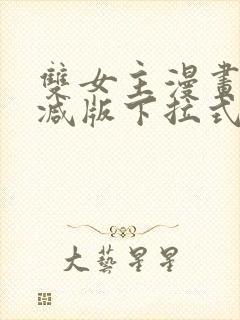 雙女主漫畫
减版下拉式
大藝星星